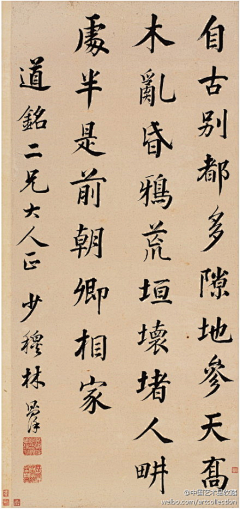 自古别都多隙地參天髙
木亂昏鴉荒垣壞堵人畊
處半是前朝卿相家
道銘二兄大人正 少穆林則徐
@中国艺术品收藏
weibo.com/artcollection